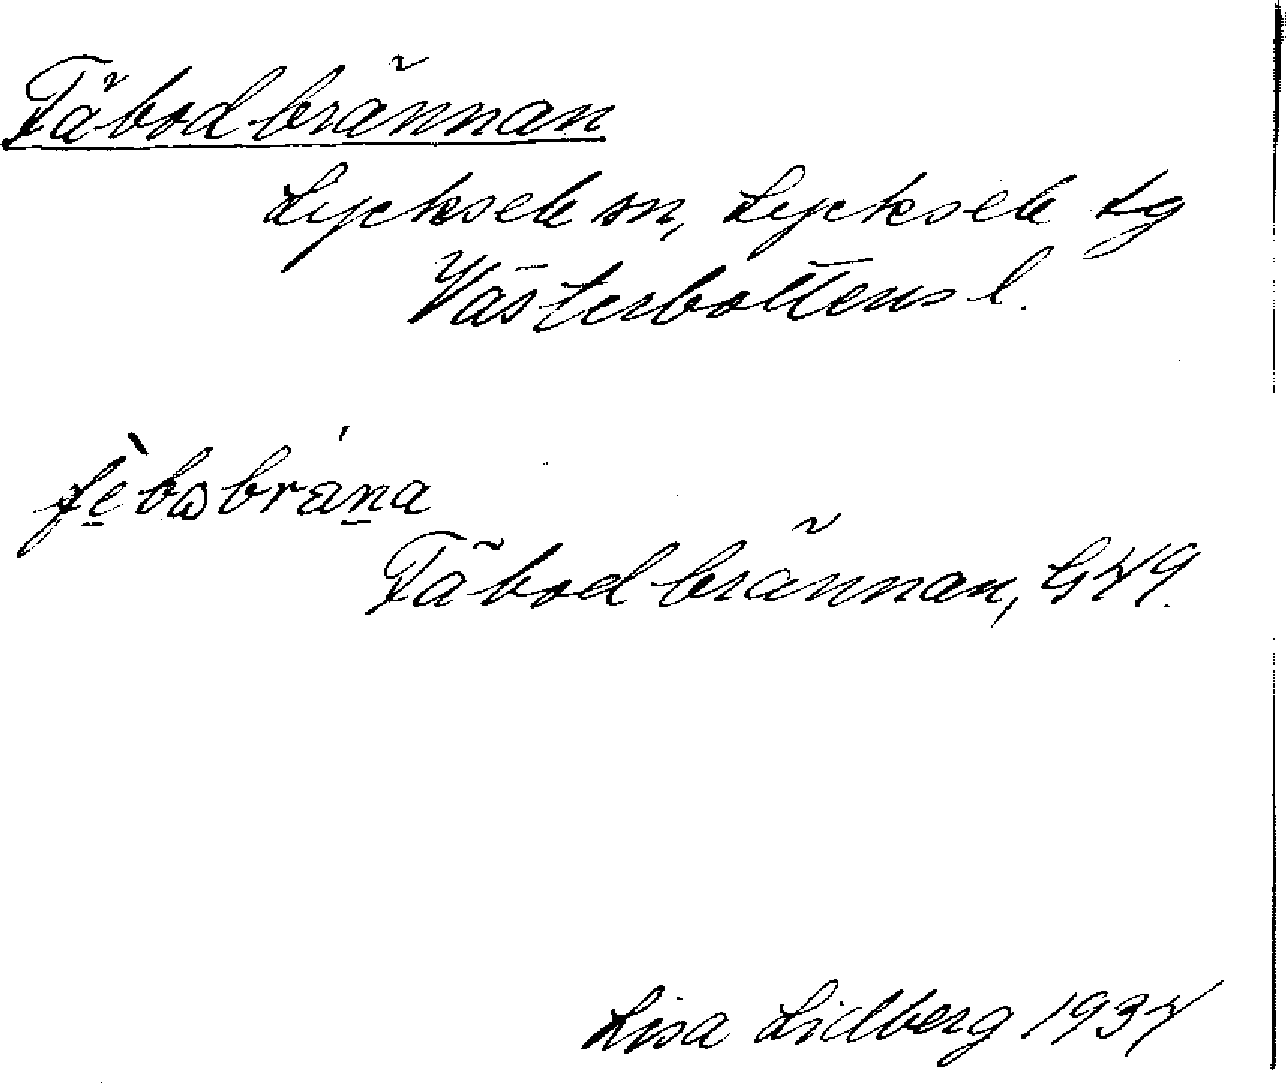 Fäbodbrännan
Lycksele sn, Lycksele tg
Västerbottens l.
Fäbodbrännan,
Lisa Lidberg 1937